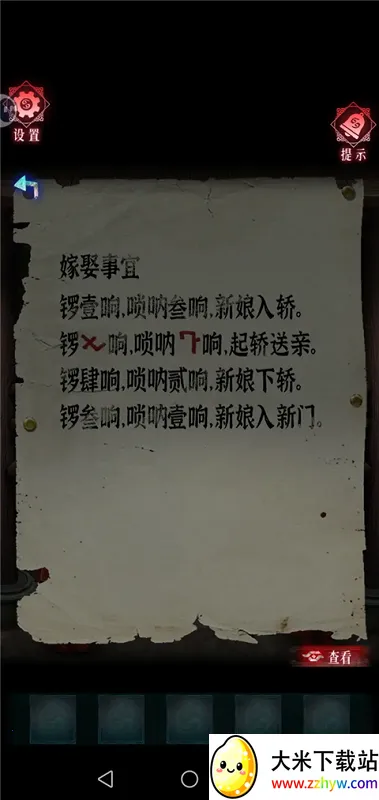 设置
提示
嫁娶事宜
锣壹响,唢呐叁响,新娘入轿。
锣〤响,唢呐〒响,起轿送亲。
锣肆响,唢呐贰响,新娘下轿。
锣叁响,唢呐壹响,新娘入新门。
查看
大米下载站
www.zzhyw.com